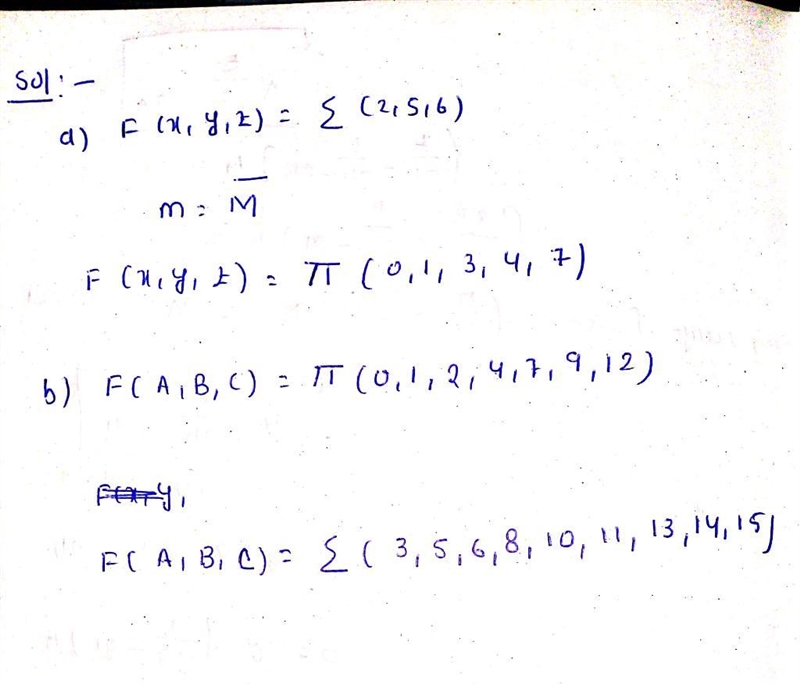 Sol :-
a) F (x, y, z) = Σ (2, 5, 6)
m = M̅
F (x, y, z) = π (0, 1, 3, 4, 7)
b) F( A, B, C) = π (0, 1, 2, 4, 7, 9, 12)
F( A, B, C) = Σ ( 3, 5, 6, 8, 10, 11, 13, 14, 15)